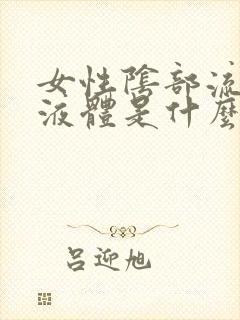 女性陰部流
液體是什麼
吕迎旭